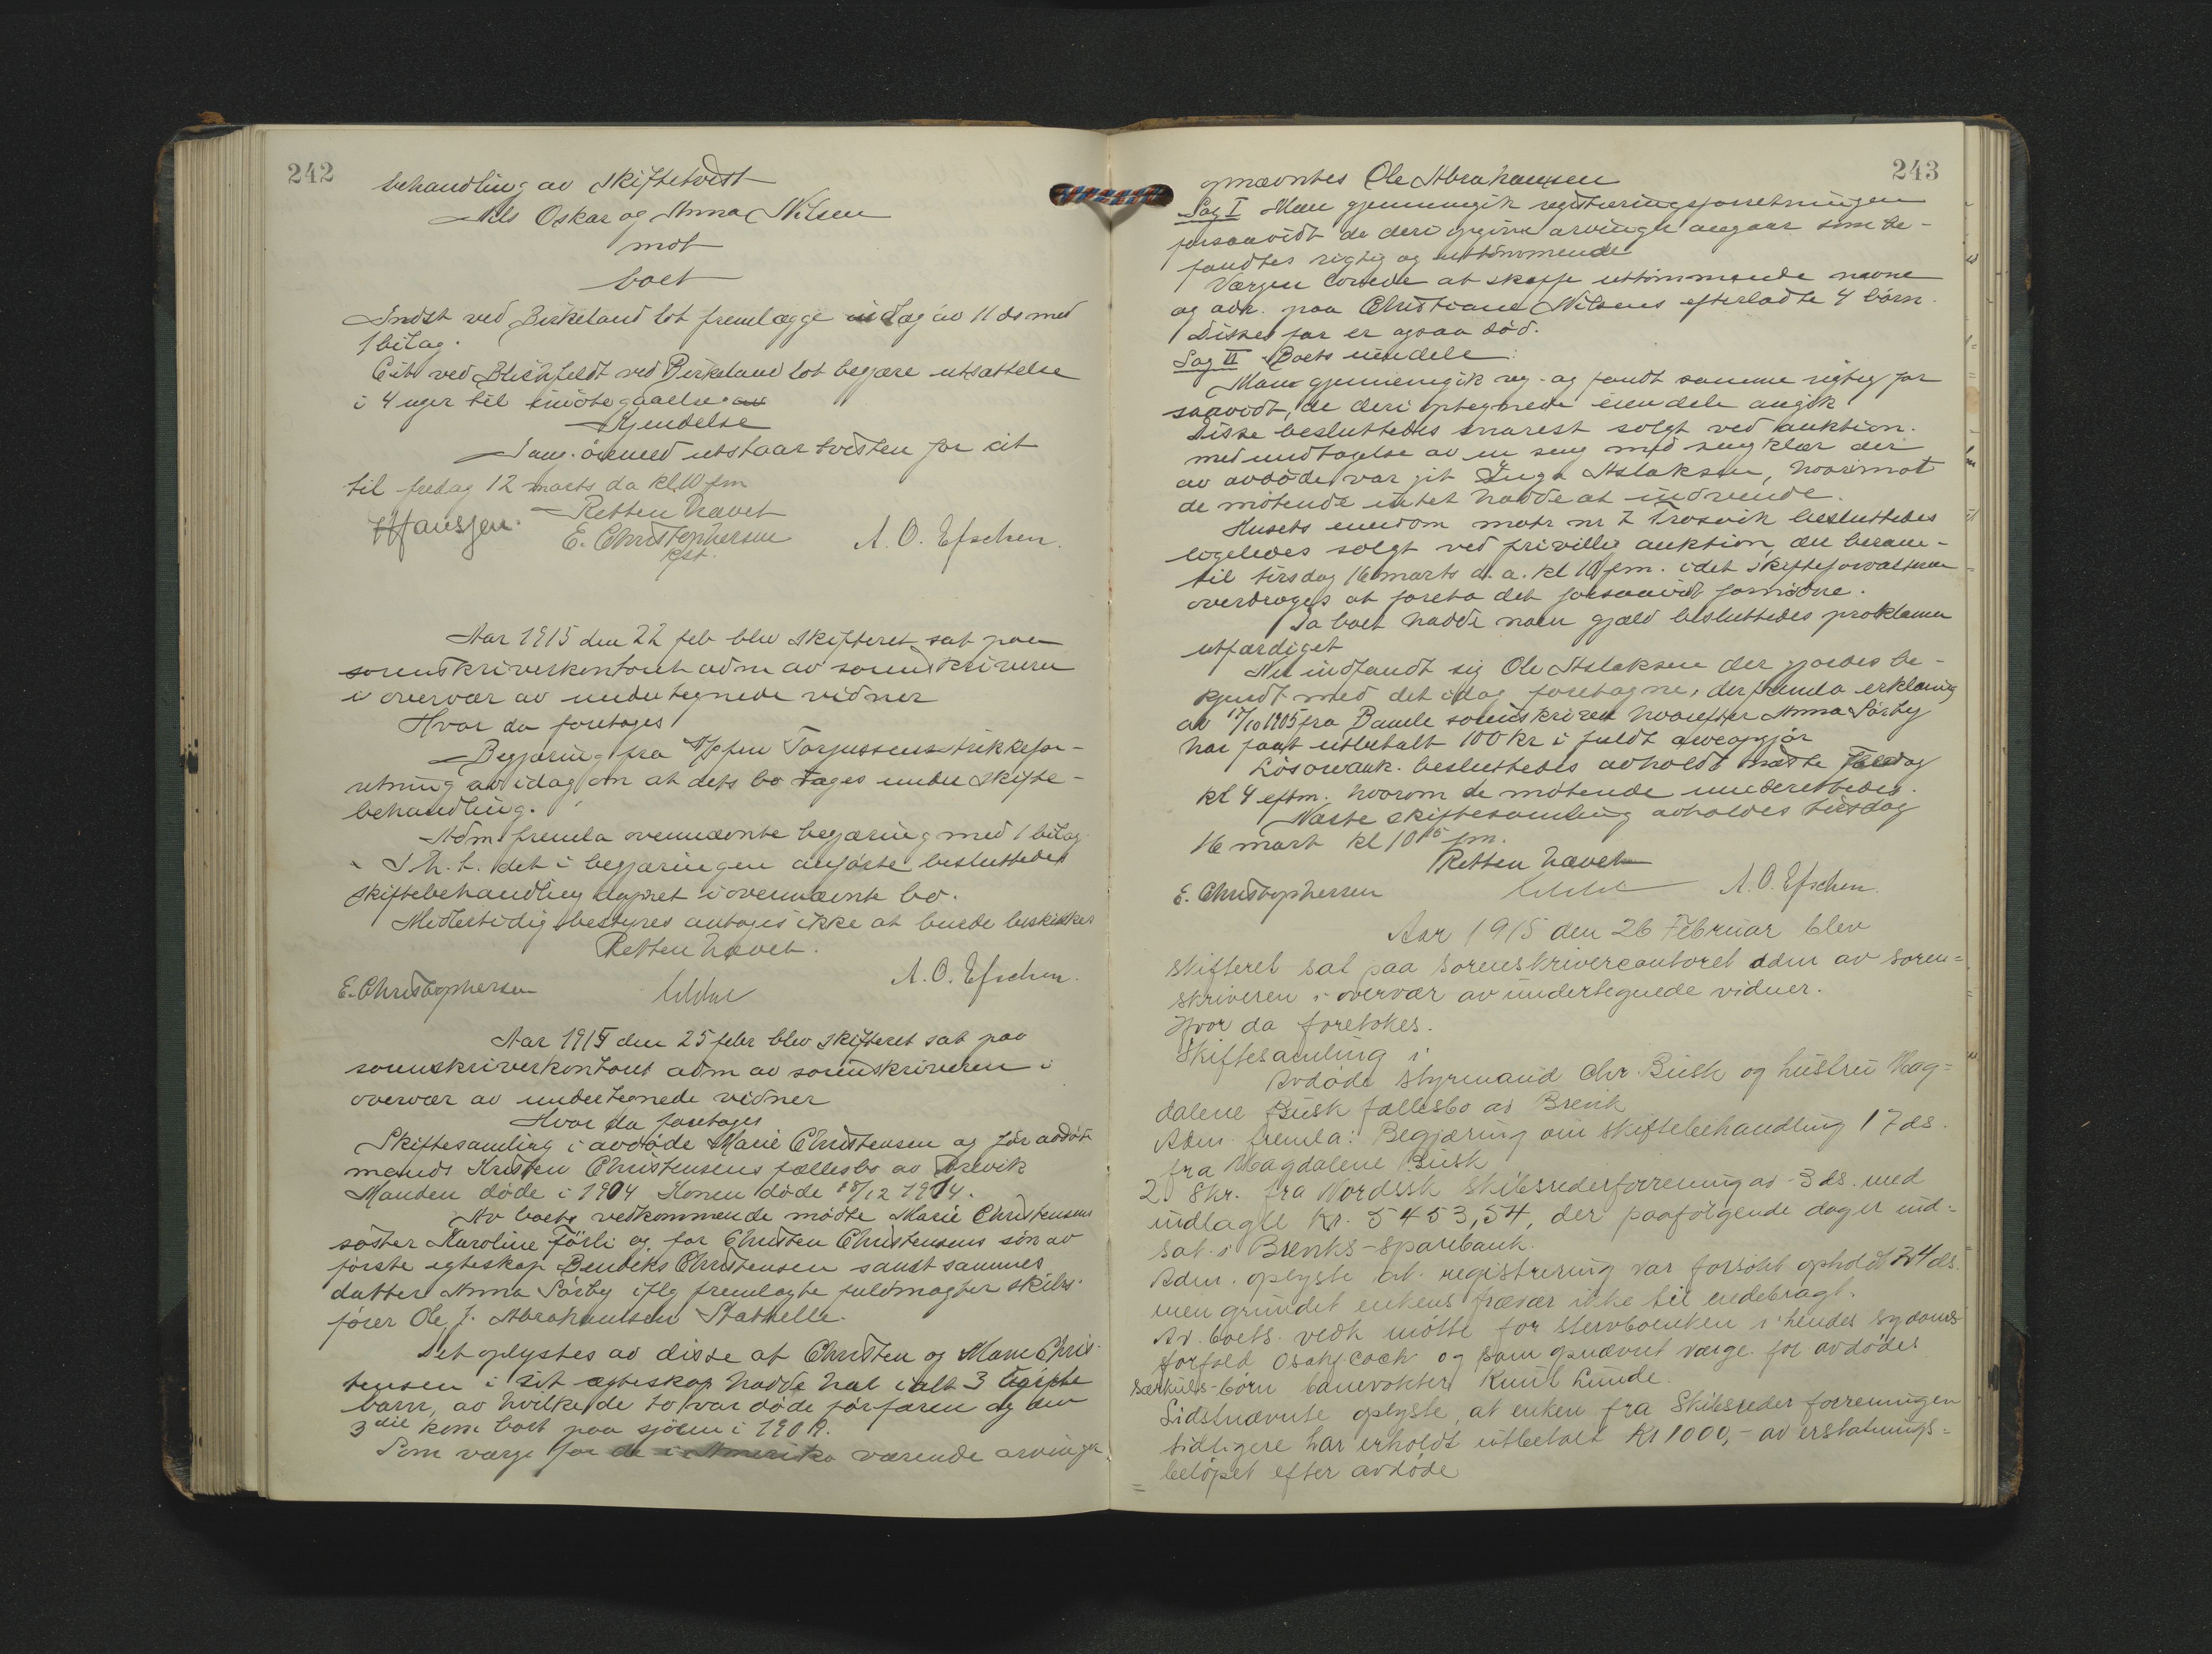 242
behandling av skiftetvist
Nils Oskar og Anna Nilsen
mot
boet
Indst ved Birkeland lot fremlægge indlæg av 11 ds med
1 bilag.
Cit. ved Blichfeldt ved Birkeland lot begjære utsættelse
i 4 uger til imøtegaaelse
Kjendelse
utstaar tvisten for cit
til fredag 12 marts da kl 10 fm
Retten hævet
E. Christophersen
Kst.
A. O. Efschen.
Aar 1915 den 22 feb blev skifteret sat paa
sorenskriverkontoret adm av sorenskriveren
i overvær av undertegnede vidner
Hvor da foretoges
Begjæring fra Torjussens trikkefor-
retning av idag om at dets bo tages under skifte-
behandling.
Adm fremla ovennævnte begjæring med 1 bilag
I h. t. det i begjæringen anførte besluttedes
skiftebehandling aapnet i ovennævnte bo.
Midlertidig bestyrer antages ikke at burde beskikkes
Retten hævet.
E. Christophersen
A. O. Efschen.
Aar 1915 den 25 febr blev skifteret sat paa
sorenskriverkontoret adm av sorenskriveren i
overvær av undertegnede vidner
Hvor da foretoges
Skiftesamling i avdøde Marie Christensen og før avdøde
mands Kristen Christensens fællesbo av Brevik
Manden døde i 1904 Konen døde 18/12 1914.
Av boets vedkommende mødte Marie Christensens
søster Karoline Førli og for Christen Christensens søn av
første egteskap Bendiks Christensen samt sammes
datter Anna Sørby iflg fremlagte fuldmagter skibs-
fører Ole J. Abrahamsen Stathelle.
Det oplystes av disse at Christen og Marie Chris-
tensen i sit egteskap hadde hat i alt 3
barn, av hvilke de to var døde før faren og den
3die kom bort paa sjøen i
Som værge for de i Amerika værende arvinger
243
opnævntes Ole Abrahamsen
Sag I Man gjennemgik registreringsforretningen
forsaavidt de deri opgivne arvinger angaar som be-
fandtes rigtig og uttømmende
Værgen lovede at skaffe uttømmende navne
og adr. paa Christiane Nilsens efterladte 4 børn.
Disses far er ogsaa død.
Sag II Boets eiendele:
Man gjennemgik reg. og fandt samme rigtig for
saavidt, de deri optegnede eiendele angik
Disse besluttedes snarest solgt ved auktion.
med undtagelse av en seng med sengklær der
av avdøde var git Inga Aslaksen, hvorimot
de møtende intet hadde at indvende.
Husets eiendom matr nr 7 Trosvik besluttedes
ligeledes solgt ved frivillig auktion, der beram-
til tirsdag 16 marts d. a. kl 10 fm. idet skifteforvalteren
overdroges at foreta det forsaavidt fornødne.
Da boet hadde noen gjæld besluttedes proklama
utfærdiget
Nu indfandt sig Ole Aslaksen der gjordes be-
kjendt med det idag foretagne, der fremla erklæring
av 17/10 1905 fra Bamle sorenskriveri hvorefter Anna Sørby
har faat utbetalt 100 kr i fuldt arveopgjør
Løsøreauk. besluttedes avholdt næste
kl 4 eftm. hvorom de møtende underrettedes.
Næste skiftesamling avholdes tirsdag
16 mart kl 10 15 fm.
Retten hævet
E. Christophersen
A. O. Efschen.
Aar 1915 den 26 Februar blev
skifteret sat paa sorenskrivercontoret adm av soren-
skriveren i overvær av undertegnede vidner.
Hvor da foretokes.
Skiftesamling i
Avdøde styrmand Chr. Busk og hustru Mag-
dalene Busk fællesbo av Brevik
Adm. fremla: Begjæring om skiftebehandling 17 ds.
fra Magdalene Busk
2) Skr. fra Nordisk Skibsrederforrening av 3 ds. med
indlagte Kr. 5453,54, der paafølgende dager ind-
sat i Breviks Sparebank.
Adm. oplyste at registrering var forsøkt opholdt 24 ds.
men grundet enkens fravær ikke til endebragt.
Av boets vedk møtte for stervboenken i hendes sygdoms
forfald og som opnævnt værge for avdødes
særkuls-børn banevokter Knut Lunde.
Sidstnævnte oplyste, at enken fra Skibsreder forreningen
tidligere har erholdt utbetalt Kr 1000,- av erstatnings-
beløpet efter avdøde